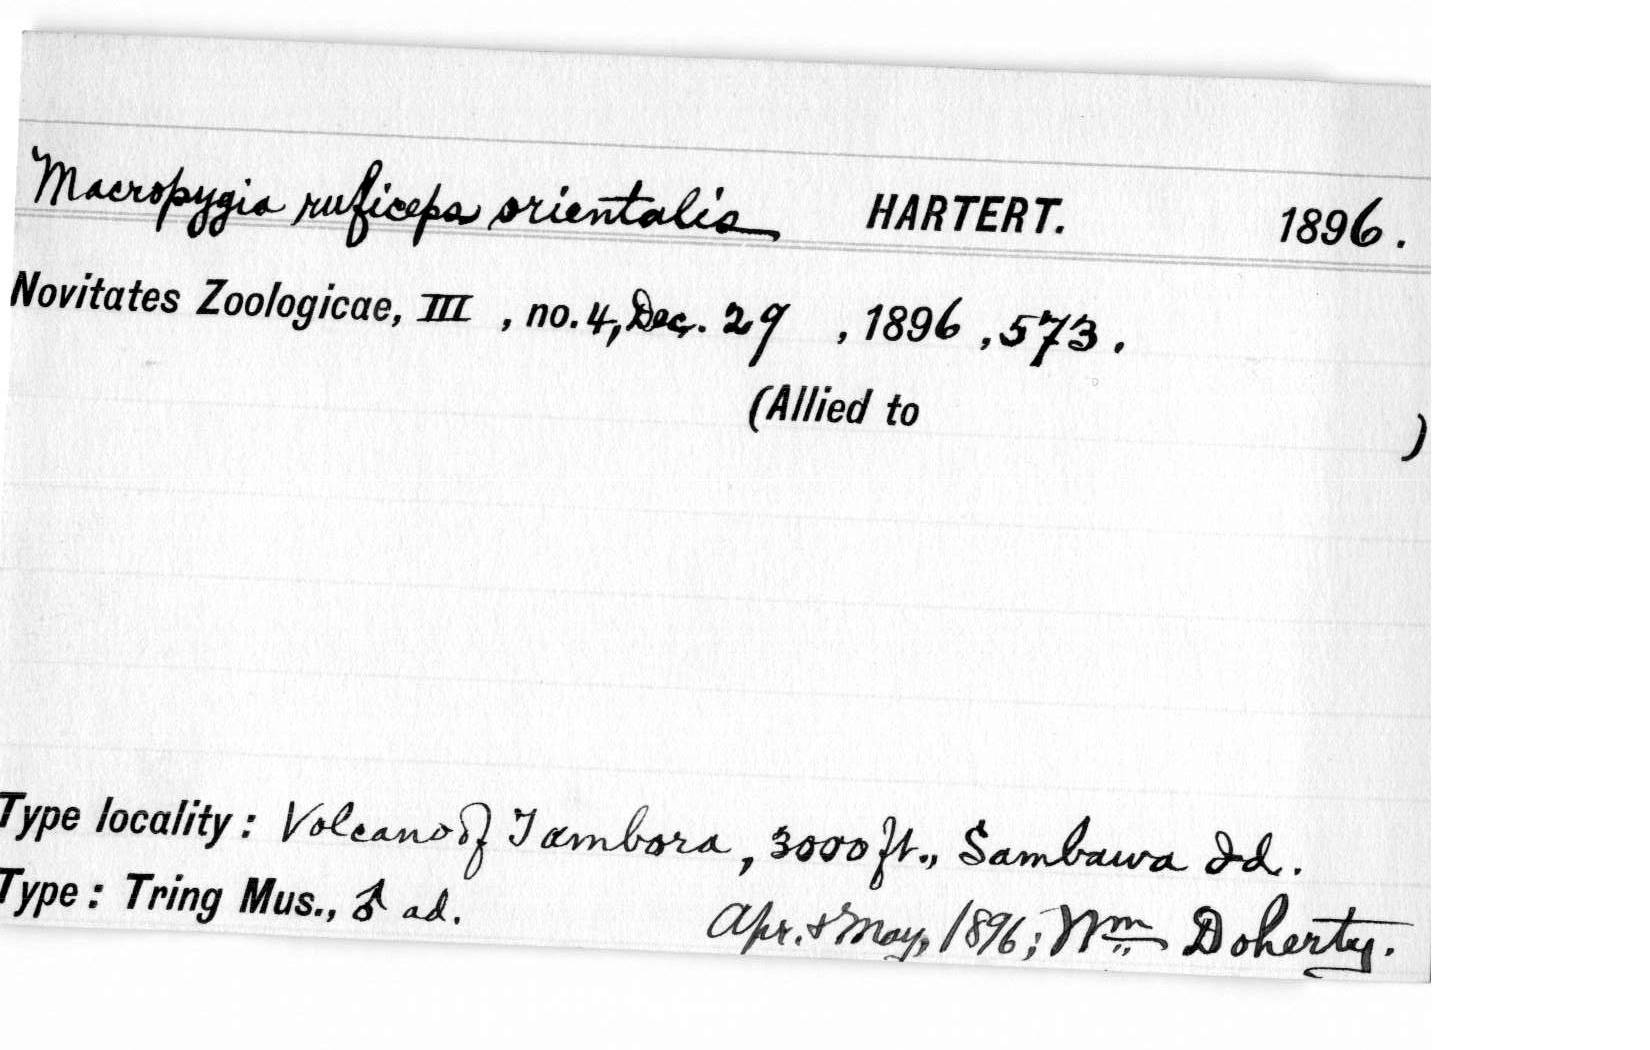 Macropygia ruficeps orientalis HARTERT. 1896.
Novitates Zoologicae, III , no. 4, Dec. 29 , 1896 , 573.
(Allied to )
Type locality: Volcano of Tambora, 3000 ft., Sambawa Id.
Type: Tring Mus., ♂ ad. Apr. & May, 1896; Wm Doherty.